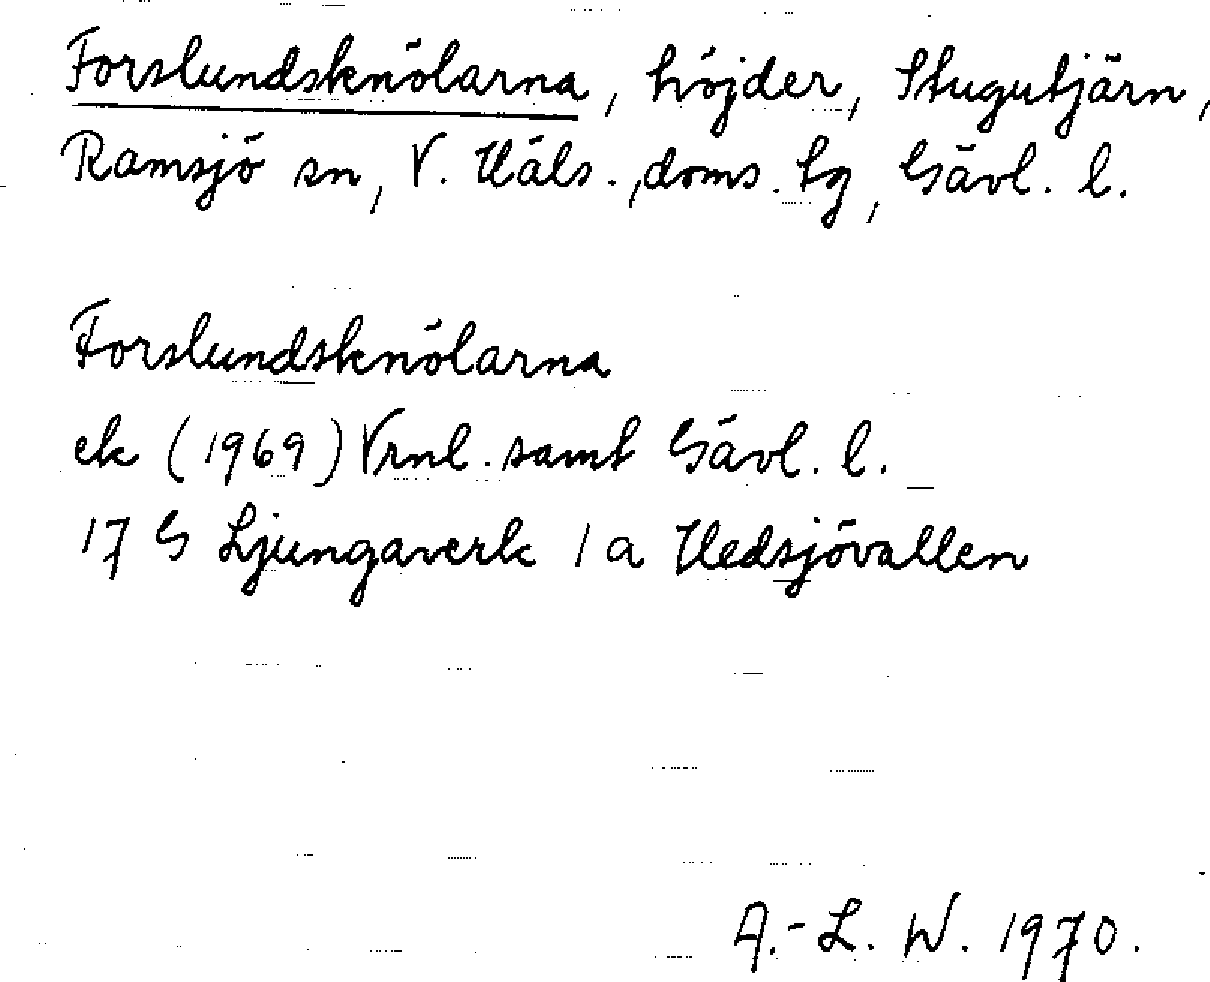 Forslundsknölarna, höjder, Stugutjärn,
Ramsjö sn, V. Häls., doms. hg, Gävl. l.
Forslundsknölarna
ek (1969) Vrnl. samt Gävl. l.
17 G Ljungaverk 1 a Hedsjövallen
A.-L. W. 1970.